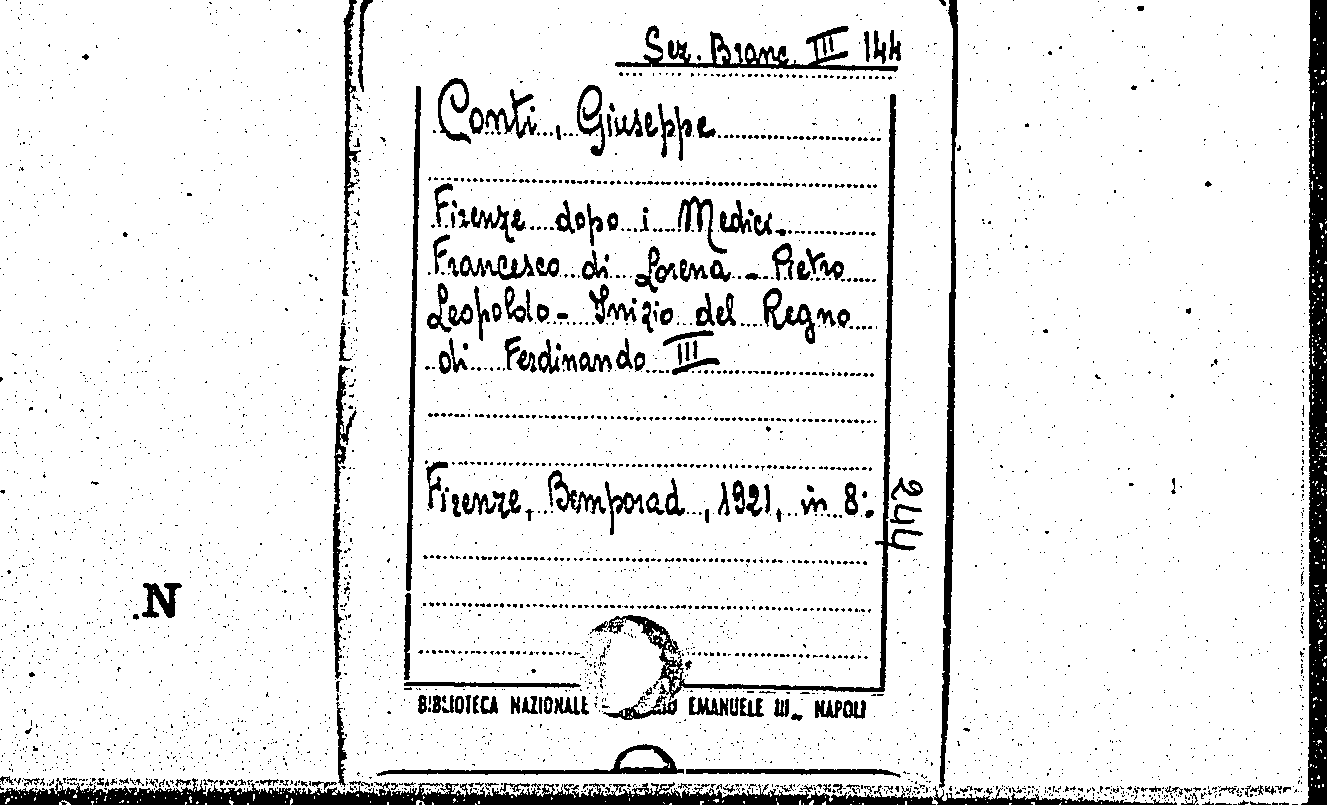 Sez. Branc. III 144
Conti, Giuseppe
Firenze dopo i Medici.
Francesco di Lorena - Pietro
Leopoldo - Inizio del Regno
di Ferdinando III
Firenze, Bemporad, 1921, in 8:
244
.N
BIBLIOTECA NAZIONALE EMANUELE III„ NAPOLI